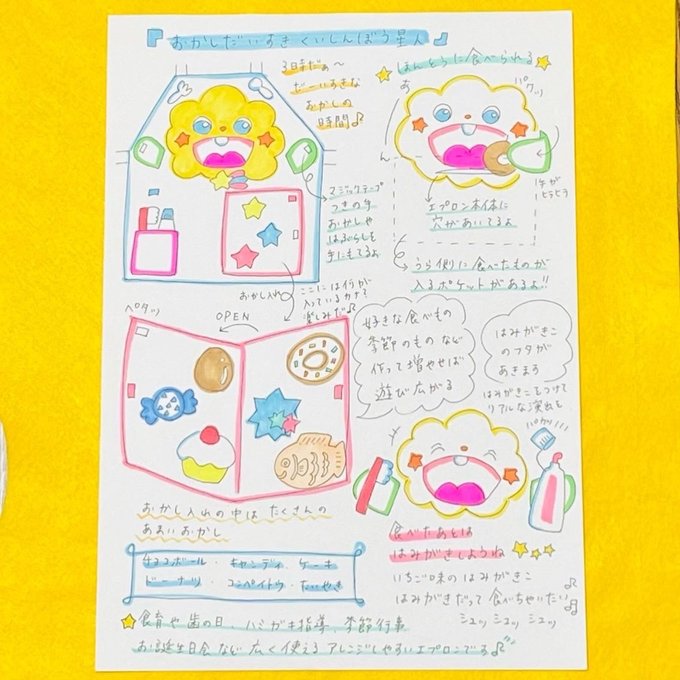 おかしだいすき くいしんぼう星人
3時だぁ〜
だーいすきな
おかしの
時間♪
マジックテープ
つきの手
おかしや
はぶらしを
手にもてるよ
おかし入れ
ここには何が
入っているカナ?
楽しみだ♪
ほんとうに食べられる
あ
ん
パクッ
手が
ヒラヒラ
エプロン本体に
穴があいてるよ
うら側に食べたものが
入るポケットがあるよ!!
ペタッ
OPEN
好きな食べもの
季節のものなど
作って増やせば
遊び広がる
はみがきこ
のフタが
あきます
はみがきこをつけて
リアルな演出を
パカッ!!
おかし入れの中は たくさんの
あまいおかし
チョコボール・キャンディ・ケーキ
ドーナツ・コンペイトウ・たいやき
食べたあとは
はみがきしようね
いちご味の はみがきこ
はみがきだって 食べちゃいたい♪
シュッ シュッ シュッ
食育や 歯の日、ハミガキ指導、季節行事
お誕生日会など 広く使える アレンジしやすいエプロンです♪